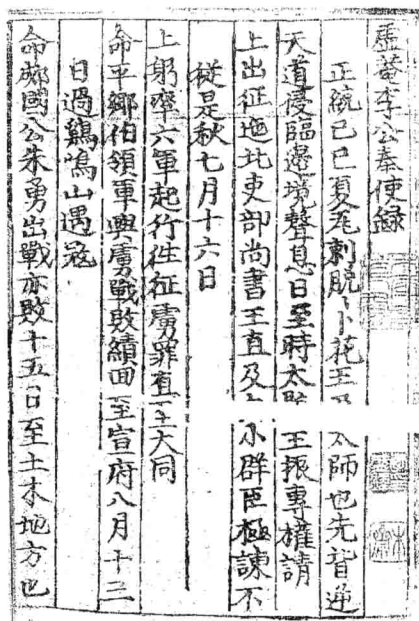 虛菴李公奉使錄
正統己巳夏瓦剌脫〻卜花王及 太師也先背逆
天道侵臨邊境聲息日至時太監 王振專權請
上出征迤北吏部尚書王直及大 小群臣極諫不
從是秋七月十六日
上躬率六軍起行徃征虜罪直至大同
命平鄉伯領軍與虜戰敗績回至宣府八月十三
日過鷄鳴山遇寇
命成國公朱勇出戰亦敗十五日至土木地方也